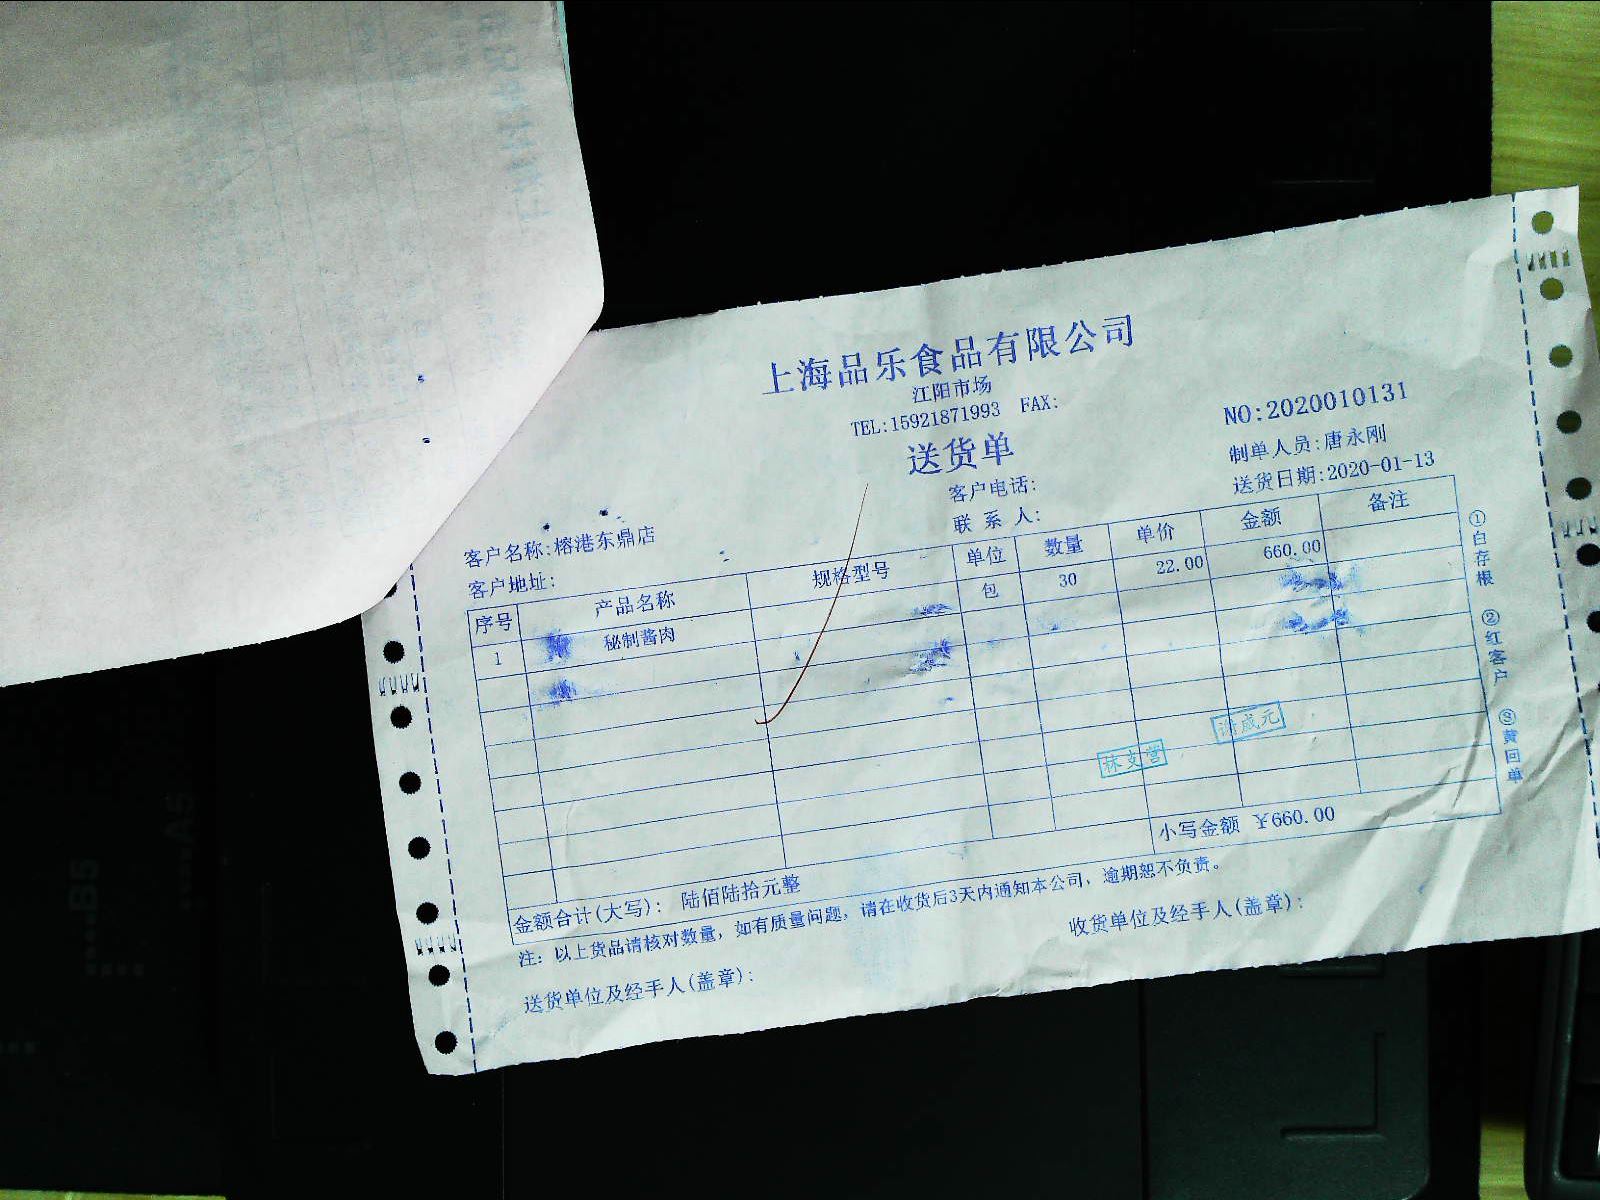 上海品乐食品有限公司
江阳市场
TEL:15921871993 FAX:
NO:2020010131
送货单
制单人员:唐永刚
客户电话:
送货日期:2020-01-13
客户名称:榕港东鼎店
联系人:
客户地址:
序号 产品名称 规格型号 单位 数量 单价 金额 备注
1 秘制酱肉 包 30 22.00 660.00
谢成元
林支营
小写金额 ¥660.00
金额合计(大写): 陆佰陆拾元整
注: 以上货品请核对数量, 如有质量问题, 请在收货后3天内通知本公司, 逾期恕不负责。
送货单位及经手人(盖章):
收货单位及经手人(盖章):
①白存根 ②红客户 ③黄回单
B5
A5